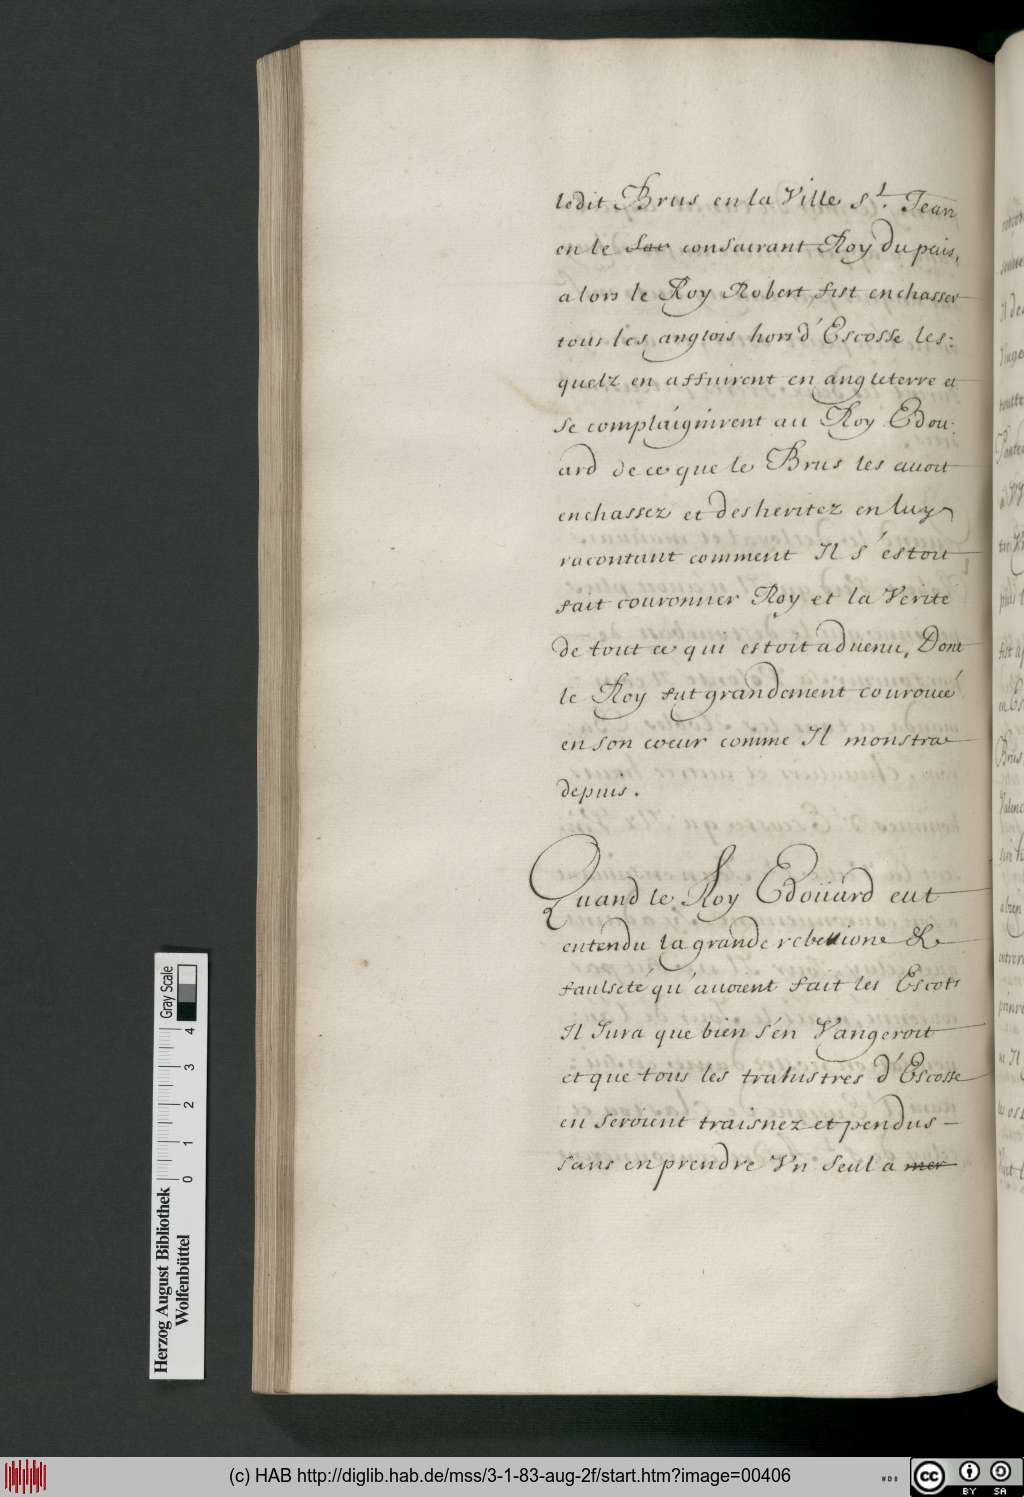 ledit Brus en la Ville S.t Jean
en le sac consacrant Roy du païs,
alors le Roy Robert fist enchasser
tous les anglois hors d'Escosse les:
quelz en affuirent en angleterre et
se complaignirent au Roy Edou:
ard de ce que le Brus les avoit
enchassez et desheritez en luy
racontant comment Il s'estoit
fait couronner Roy et la Verité
de tout ce qui estoit advenu, Dont
le Roy fut grandement courouceé
en son coeur comme Il monstra
depuis.
Quand le Roy Edoüard eut
entendu la grande rebellione &
faulseté qu'avoient fait les Escots
Il Jura que bien s'en Vangeroit
et que tous les trahistres d'Escosse
en seroient traisnez et pendus -
sans en prendre Vn seul a mer
Herzog August Bibliothek
Wolfenbüttel
0 1 2 3 4
Gray Scale
(c) HAB http://diglib.hab.de/mss/3-1-83-aug-2f/start.htm?image=00406
WDB
cc BY SA